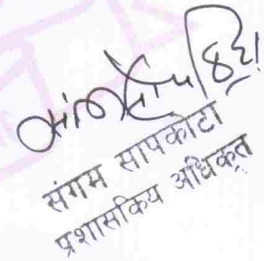 संगम सापकोटा
प्रशासकिय अधिकृत